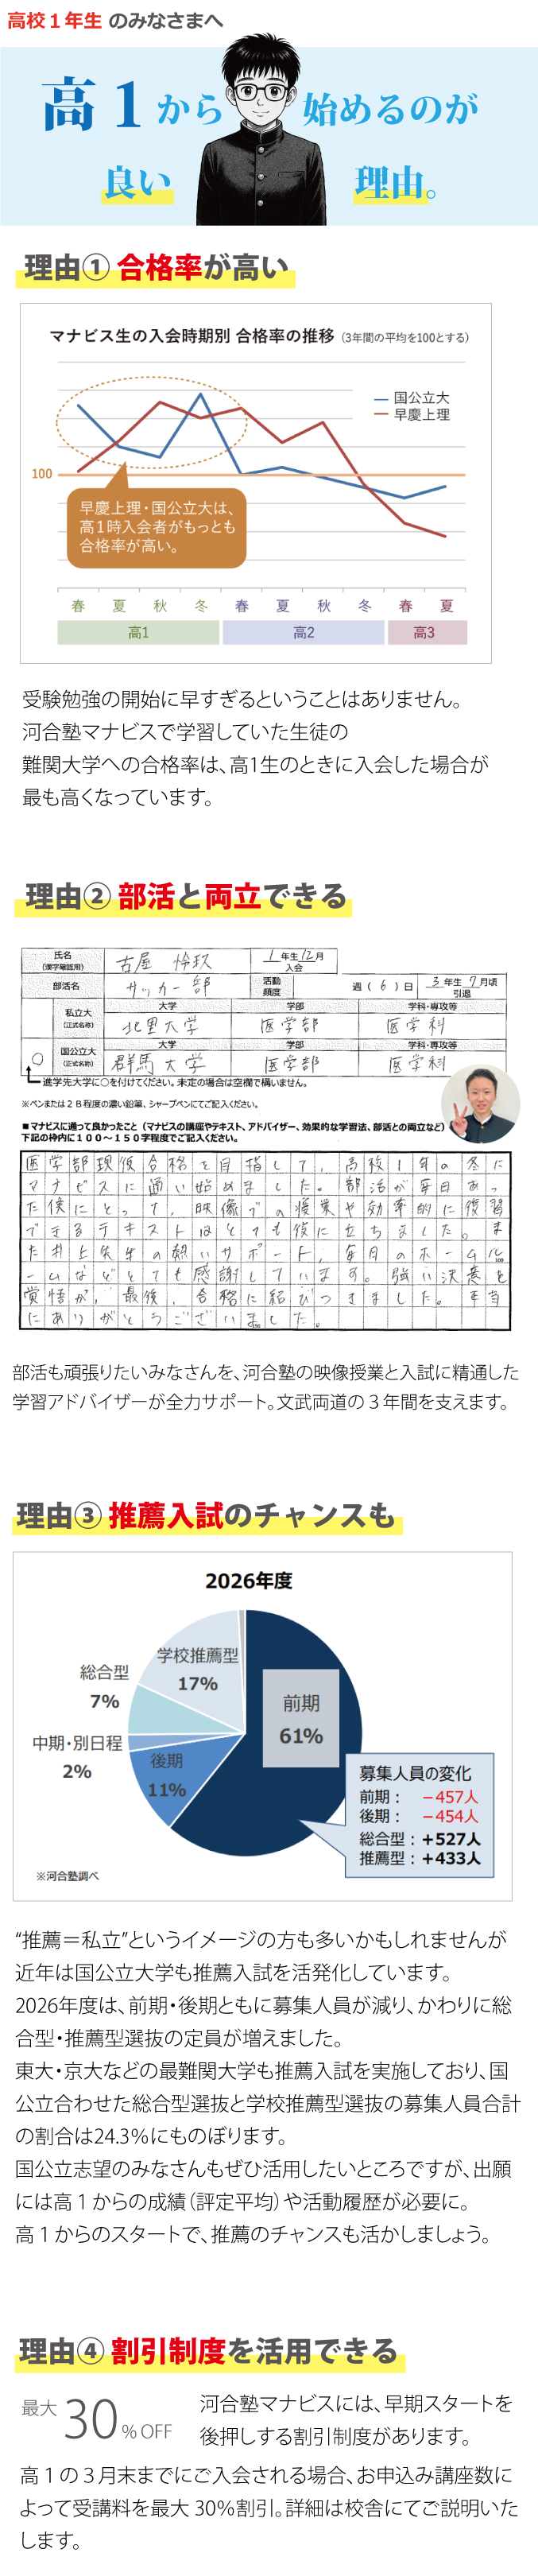 高校1年生 のみなさまへ
高1から始めるのが
良い理由。
理由① 合格率が高い
マナビス生の入会時期別 合格率の推移(3年間の平均を100とする)
国公立大
早慶上理
100
早慶上理・国公立大は、
高1時入会者がもっとも
合格率が高い。
春 夏 秋 冬 春 夏 秋 冬 春 夏
高1 高2 高3
受験勉強の開始に早すぎるということはありません。
河合塾マナビスで学習していた生徒の
難関大学への合格率は、高1生のときに入会した場合が
最も高くなっています。
理由② 部活と両立できる
氏名
(漢字確認用)
古屋 怜玖
1年生12月
入会
部活名
サッカー部
活動
頻度
週(6)日
3年生7月頃
引退
大学 学部 学科・専攻等
私立大
(正式名称)
北里大学 医学部 医学科
大学 学部 学科・専攻等
○
国公立大
(正式名称)
群馬大学 医学部 医学科
進学先大学に○を付けてください。未定の場合は空欄で構いません。
※ペンまたは2B程度の濃い鉛筆、シャープペンにてご記入ください。
■マナビスに通って良かったこと(マナビスの講座やテキスト、アドバイザー、効果的な学習法、部活との両立など)
下記の枠内に100〜150字程度でご記入ください。
医学部現役合格を目指して、高校1年の冬に
マナビスに通い始めました。部活が毎日あっ
た僕にとって、映像での授業や効率的に復習
できるテキストはとても役に立ちました。ま
た井上先生の熱いサポート、毎月のホームル
ームなどとても感謝しています。強い決意と
覚悟が、最後、合格に結びつきました。本当
にありがとうございました。
部活も頑張りたいみなさんを、河合塾の映像授業と入試に精通した
学習アドバイザーが全力サポート。文武両道の3年間を支えます。
理由③ 推薦入試のチャンスも
2026年度
学校推薦型
17%
総合型
7%
中期・別日程
2%
後期
11%
前期
61%
募集人員の変化
前期: −457人
後期: −454人
総合型:+527人
推薦型:+433人
※河合塾調べ
“推薦=私立”というイメージの方も多いかもしれませんが
近年は国公立大学も推薦入試を活発化しています。
2026年度は、前期・後期ともに募集人員が減り、かわりに総
合型・推薦型選抜の定員が増えました。
東大・京大などの最難関大学も推薦入試を実施しており、国
公立合わせた総合型選抜と学校推薦型選抜の募集人員合計
の割合は24.3%にものぼります。
国公立志望のみなさんもぜひ活用したいところですが、出願
には高1からの成績(評定平均)や活動履歴が必要に。
高1からのスタートで、推薦のチャンスも活かしましょう。
理由④ 割引制度を活用できる
最大 30% OFF
河合塾マナビスには、早期スタートを
後押しする割引制度があります。
高1の3月末までにご入会される場合、お申込み講座数に
よって受講料を最大30%割引。詳細は校舎にてご説明いた
します。